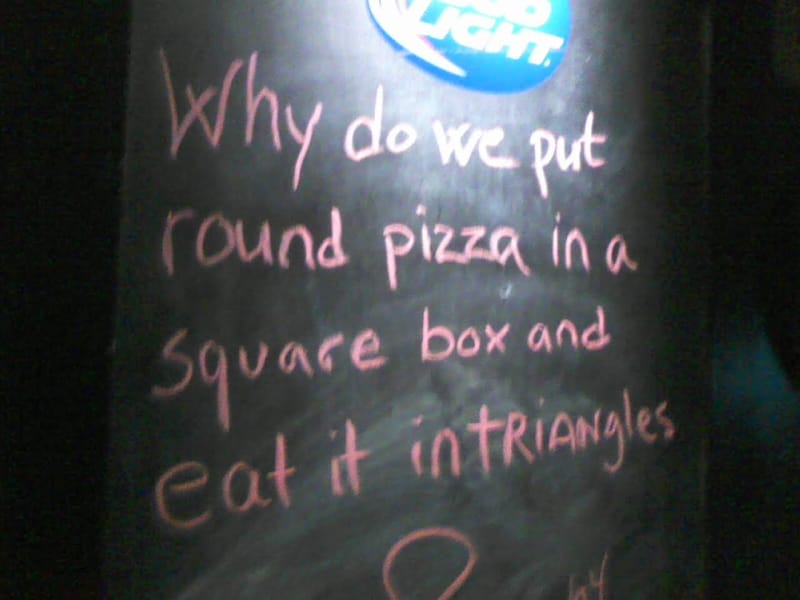 BUD
LIGHT
Why do we put
round pizza in a
square box and
eat it in tRiANgles
?